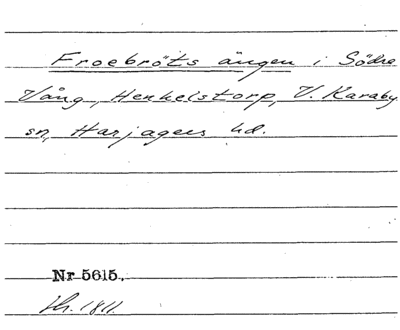 Froebröts ängen i Södra
Vång, Henkelstorp, V. Karaby
sn, Harjagers hd.
Nr 5615.
1811.